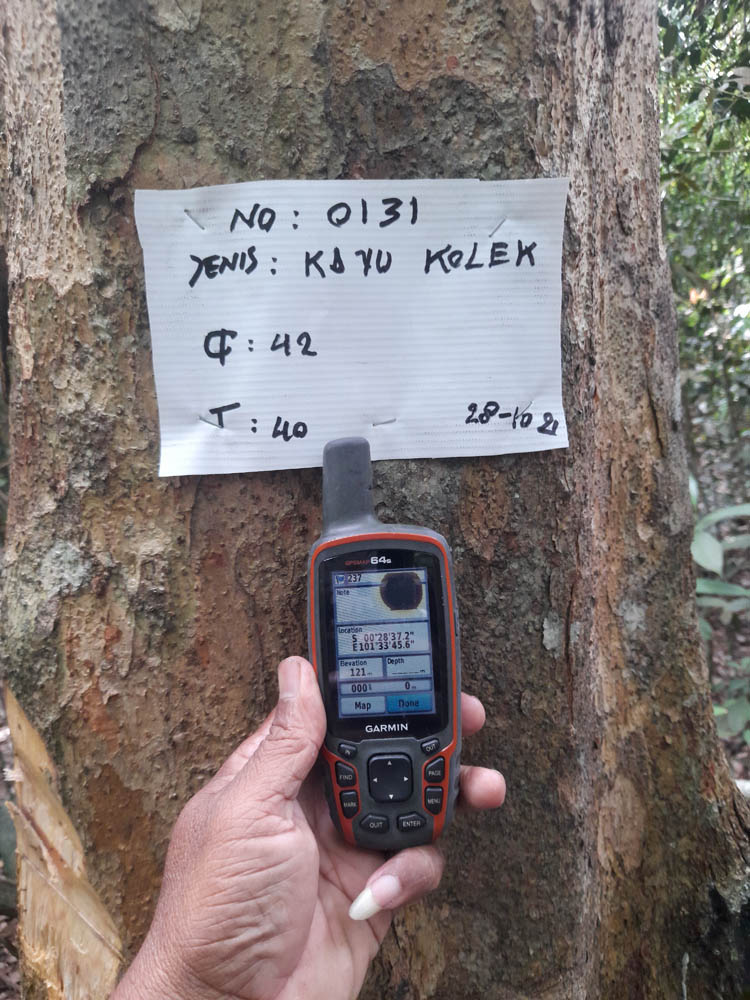 NO : 0131
JENIS : KAYU KOLEK
₵ : 42
T : 40
28-10 21
GPSMAP 64s
237
Note
Location
S 00°28'37.2"
E101°33'45.6"
Elevation Depth
121 m
0 m
Map Done
GARMIN
IN OUT
FIND PAGE
MARK MENU
QUIT ENTER